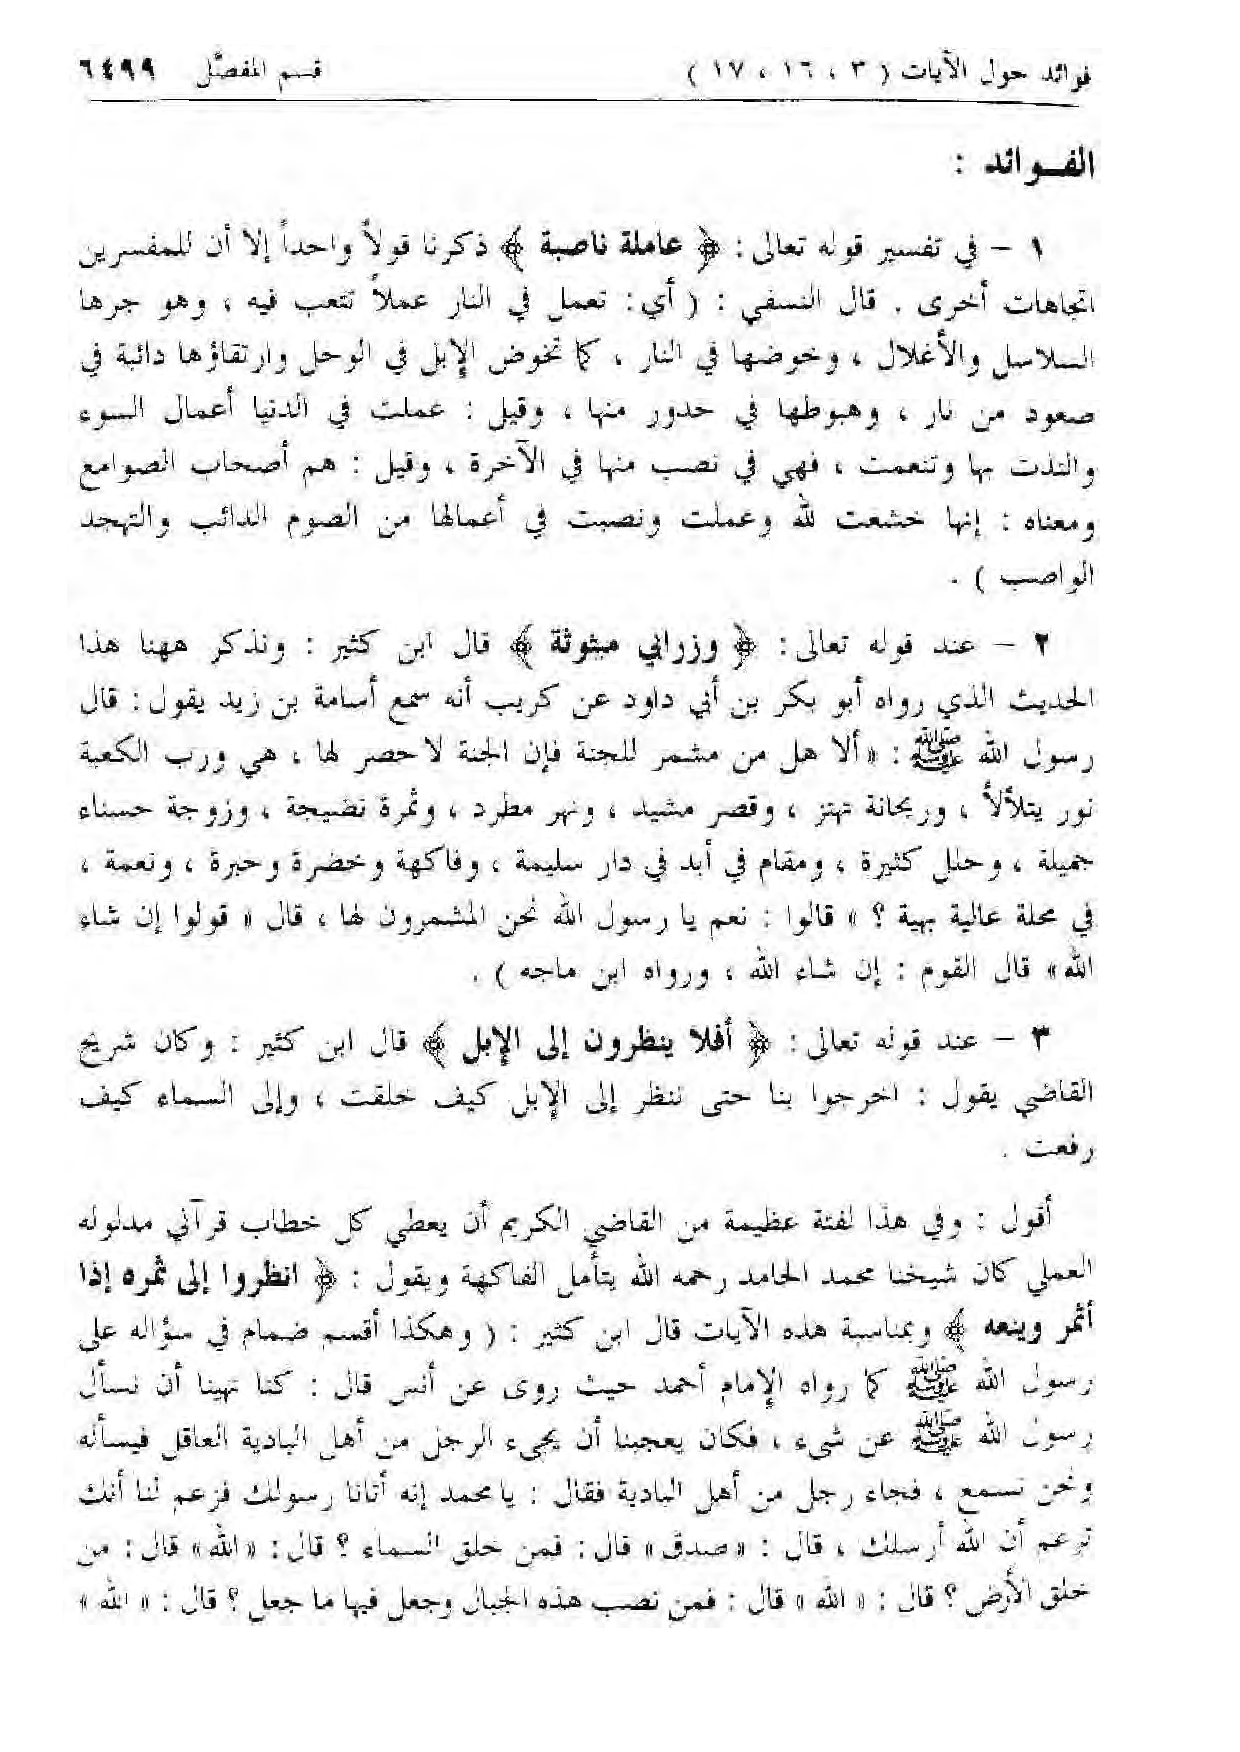 فوائد حول الآيات ( ٣ ، ١٦ ، ١٧ ) قسم المفصَّل ٦٤٩٩
الفـوائد :
١ – في تفسير قوله تعالى : ﴿ عاملة ناصبة ﴾ ذكرنا قولاً واحداً إلا أن للمفسرين
اتجاهات أخرى . قال النسفي : ( أي : تعمل في النار عملاً تتعب فيه ، وهو جرها
السلاسل والأغلال ، وخوضها في النار ، كما تخوض الإبل في الوحل وارتقاؤها دائبة في
صعود من نار ، وهبوطها في حدور منها ، وقيل : عملت في الدنيا أعمال السوء
والتذت بها وتنعمت ، فهي في نصب منها في الآخرة ، وقيل : هم أصحاب الصوامع
ومعناه : إنها خشعت لله وعملت ونصبت في أعمالها من الصوم الدائب والتهجد
الواصب ) .
٢ – عند قوله تعالى : ﴿ وزرابي مبثوثة ﴾ قال ابن كثير : ونذكر ههنا هذا
الحديث الذي رواه أبو بكر بن أبي داود عن كريب أنه سمع أسامة بن زيد يقول : قال
رسول الله ﷺ : « ألا هل من مشمر للجنة فإن الجنة لا حصر لها ، هي ورب الكعبة
نور يتلألأ ، وريحانة تهتز ، وقصر مشيد ، ونهر مطرد ، وثمرة نضيجة ، وزوجة حسناء
جميلة ، وحلل كثيرة ، ومقام في أبد في دار سليمة ، وفاكهة وخضرة وحبرة ، ونعمة ،
في محلة عالية بهية ؟ » قالوا : نعم يا رسول الله نحن المشمرون لها ، قال « قولوا إن شاء
الله » قال القوم : إن شاء الله ، ورواه ابن ماجه ) .
٣ – عند قوله تعالى : ﴿ أفلا ينظرون إلى الإبل ﴾ قال ابن كثير : وكان شريح
القاضي يقول : اخرجوا بنا حتى ننظر إلى الإبل كيف خلقت ، وإلى السماء كيف
رفعت .
أقول : وفي هذا لفتة عظيمة من القاضي الكريم أن يعطي كل خطاب قرآني مدلوله
العملي كان شيخنا محمد الحامد رحمه الله يتأمل الفاكهة ويقول : ﴿ انظروا إلى ثمره إذا
أثمر وينعه ﴾ وبمناسبة هذه الآيات قال ابن كثير : ( وهكذا أقسم ضمام في سؤاله على
رسول الله ﷺ كما رواه الإمام أحمد حيث روى عن أنس قال : كنا نهينا أن نسأل
رسول الله ﷺ عن شيء ، فكان يعجبنا أن يجيء الرجل من أهل البادية العاقل فيسأله
ونحن نسمع ، فجاء رجل من أهل البادية فقال : يا محمد إنه أتانا رسولك فزعم لنا أنك
تزعم أن الله أرسلك ، قال : « صدق » قال : فمن خلق السماء ؟ قال : « الله » قال : من
خلق الأرض ؟ قال : « الله » قال : فمن نصب هذه الجبال وجعل فيها ما جعل ؟ قال : « الله »